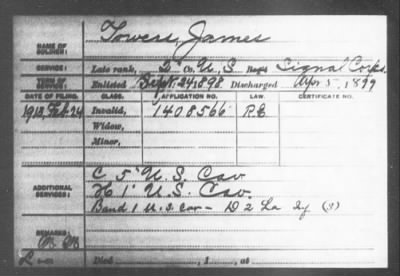 NAME OF SOLDIER: Towers, James
SERVICE: Late rank, 2" Co. U.S. Reg't Signal Corps.
TERM OF SERVICE: Enlisted Sept. 24, 1898. Discharged Apr. 5, 1899
DATE OF FILING. CLASS. APPLICATION NO. LAW. CERTIFICATE NO.
1912, Feb. 24 Invalid, 1408566
Widow,
Minor,
ADDITIONAL SERVICES: C 5" U.S. Cav
H 1" U.S. Cav.
Band 1 U.S. Cav - D 2 La
REMARKS:
Died , 1 , at